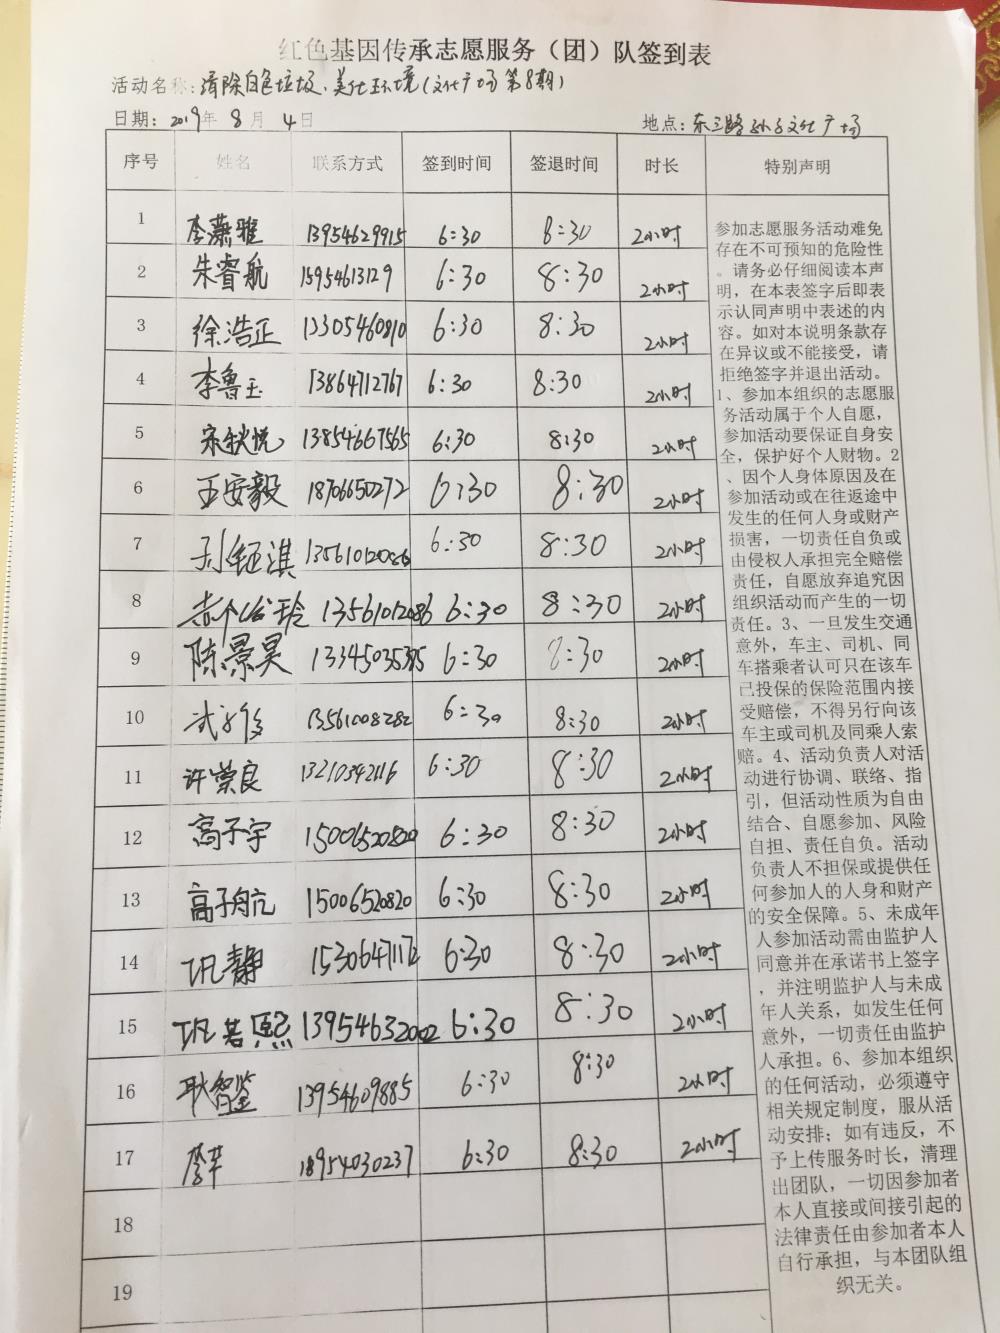 红色基因传承志愿服务（团）队签到表
活动名称：清除白色垃圾、美化环境（文化广场第8期）
日期：2019年8月4日 地点：东三路孙子文化广场
序号 姓名 联系方式 签到时间 签退时间 时长 特别声明
1 李潇雅 13954629915 6:30 8:30 2小时
2 朱睿航 15954613129 6:30 8:30 2小时
3 徐浩正 13305460810 6:30 8:30 2小时
4 李鲁玉 13864712767 6:30 8:30 2小时
5 宋秋悦 13854667565 6:30 8:30 2小时
6 王安毅 18706650272 6:30 8:30 2小时
7 孙钰淇 13561012086 6:30 8:30 2小时
8 13561012086 6:30 8:30 2小时
9 陈景昊 13345035385 6:30 8:30 2小时
10 武 13561008282 6:30 8:30 2小时
11 许荣良 13210342116 6:30 8:30 2小时
12 高子宇 15006520820 6:30 8:30 2小时
13 高子航 15006520820 6:30 8:30 2小时
14 巩静 15306471172 6:30 8:30 2小时
15 巩若熙 13954632002 6:30 8:30 2小时
16 耿智鉴 13954609885 6:30 8:30 2小时
17 李芊 18954030237 6:30 8:30 2小时
18
19
参加志愿服务活动难免
存在不可预知的危险性
。请务必仔细阅读本声
明，在本表签字后即表
示认同声明中表述的内
容。如对本说明条款存
在异议或不能接受，请
拒绝签字并退出活动。
1、参加本组织的志愿服
务活动属于个人自愿，
参加活动要保证自身安
全，保护好个人财物。2
、因个人身体原因及在
参加活动或在往返途中
发生的任何人身或财产
损害，一切责任自负或
由侵权人承担完全赔偿
责任，自愿放弃追究因
组织活动而产生的一切
责任。3、一旦发生交通
意外，车主、司机、同
车搭乘者认可只在该车
已投保的保险范围内接
受赔偿，不得另行向该
车主或司机及同乘人索
赔。4、活动负责人对活
动进行协调、联络、指
引，但活动性质为自由
结合、自愿参加、风险
自担、责任自负。活动
负责人不担保或提供任
何参加人的人身和财产
的安全保障。5、未成年
人参加活动需由监护人
同意并在承诺书上签字
，并注明监护人与未成
年人关系，如发生任何
意外，一切责任由监护
人承担。6、参加本组织
的任何活动，必须遵守
相关规定制度，服从活
动安排；如有违反，不
予上传服务时长，清理
出团队，一切因参加者
本人直接或间接引起的
法律责任由参加者本人
自行承担，与本团队组
织无关。